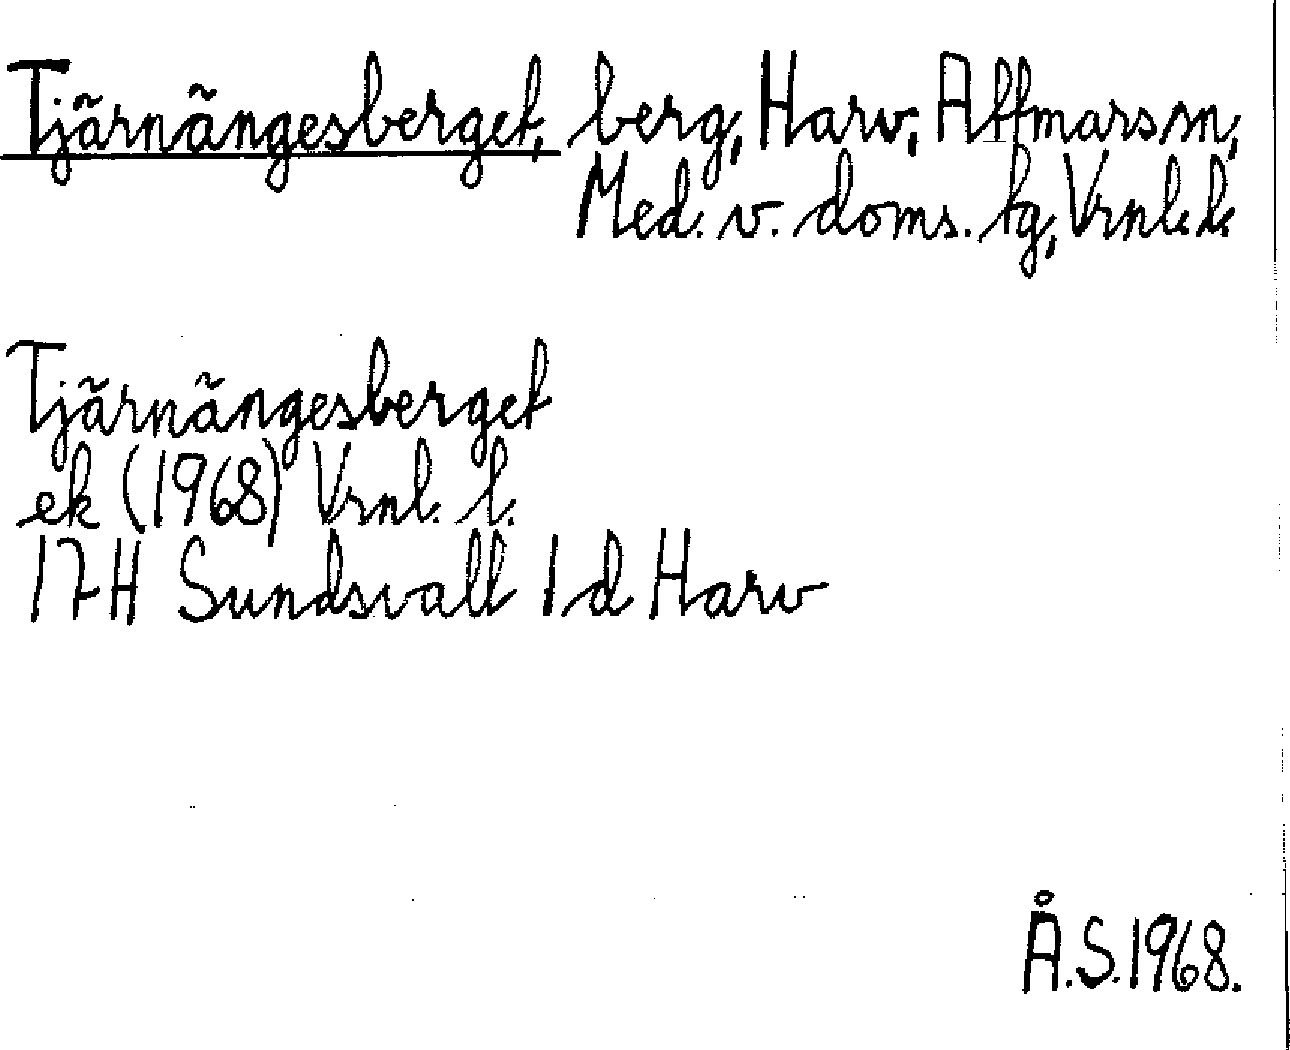 Tjärnängesberget, berg, Harv, Attmars sn,
Med. v. doms. tg, Vrnl. l.
Tjärnängesberget
ek (1968) Vrnl. l.
17H Sundsvall 1d Harv
Å.S. 1968.